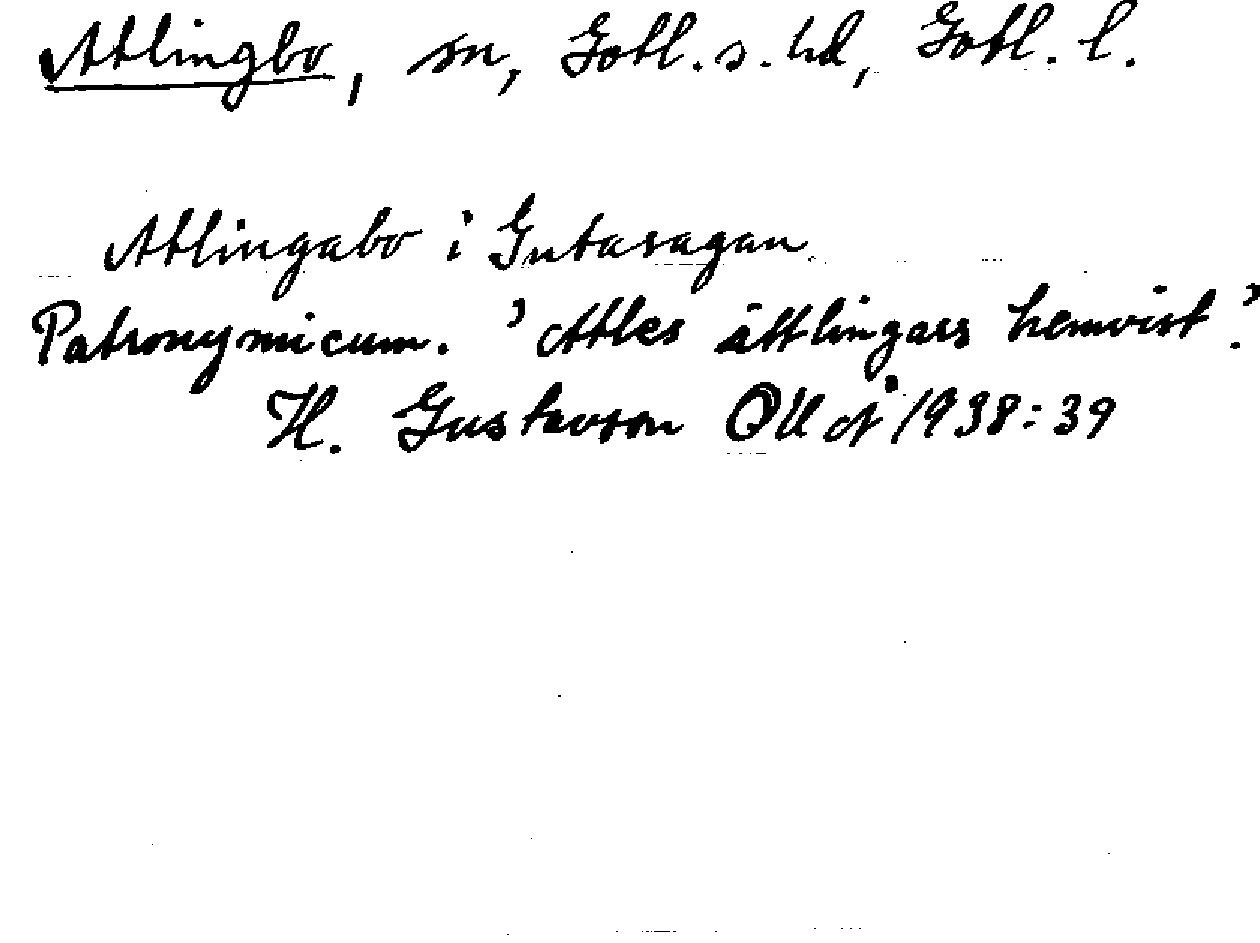 Atlingbo, sn, Gotl. s. hd, Gotl. l.
Atlingabo i Gutasagan
Patronymicum. 'Atles ättlingars hemvist'.
H. Gustavson OUÅ 1938:39